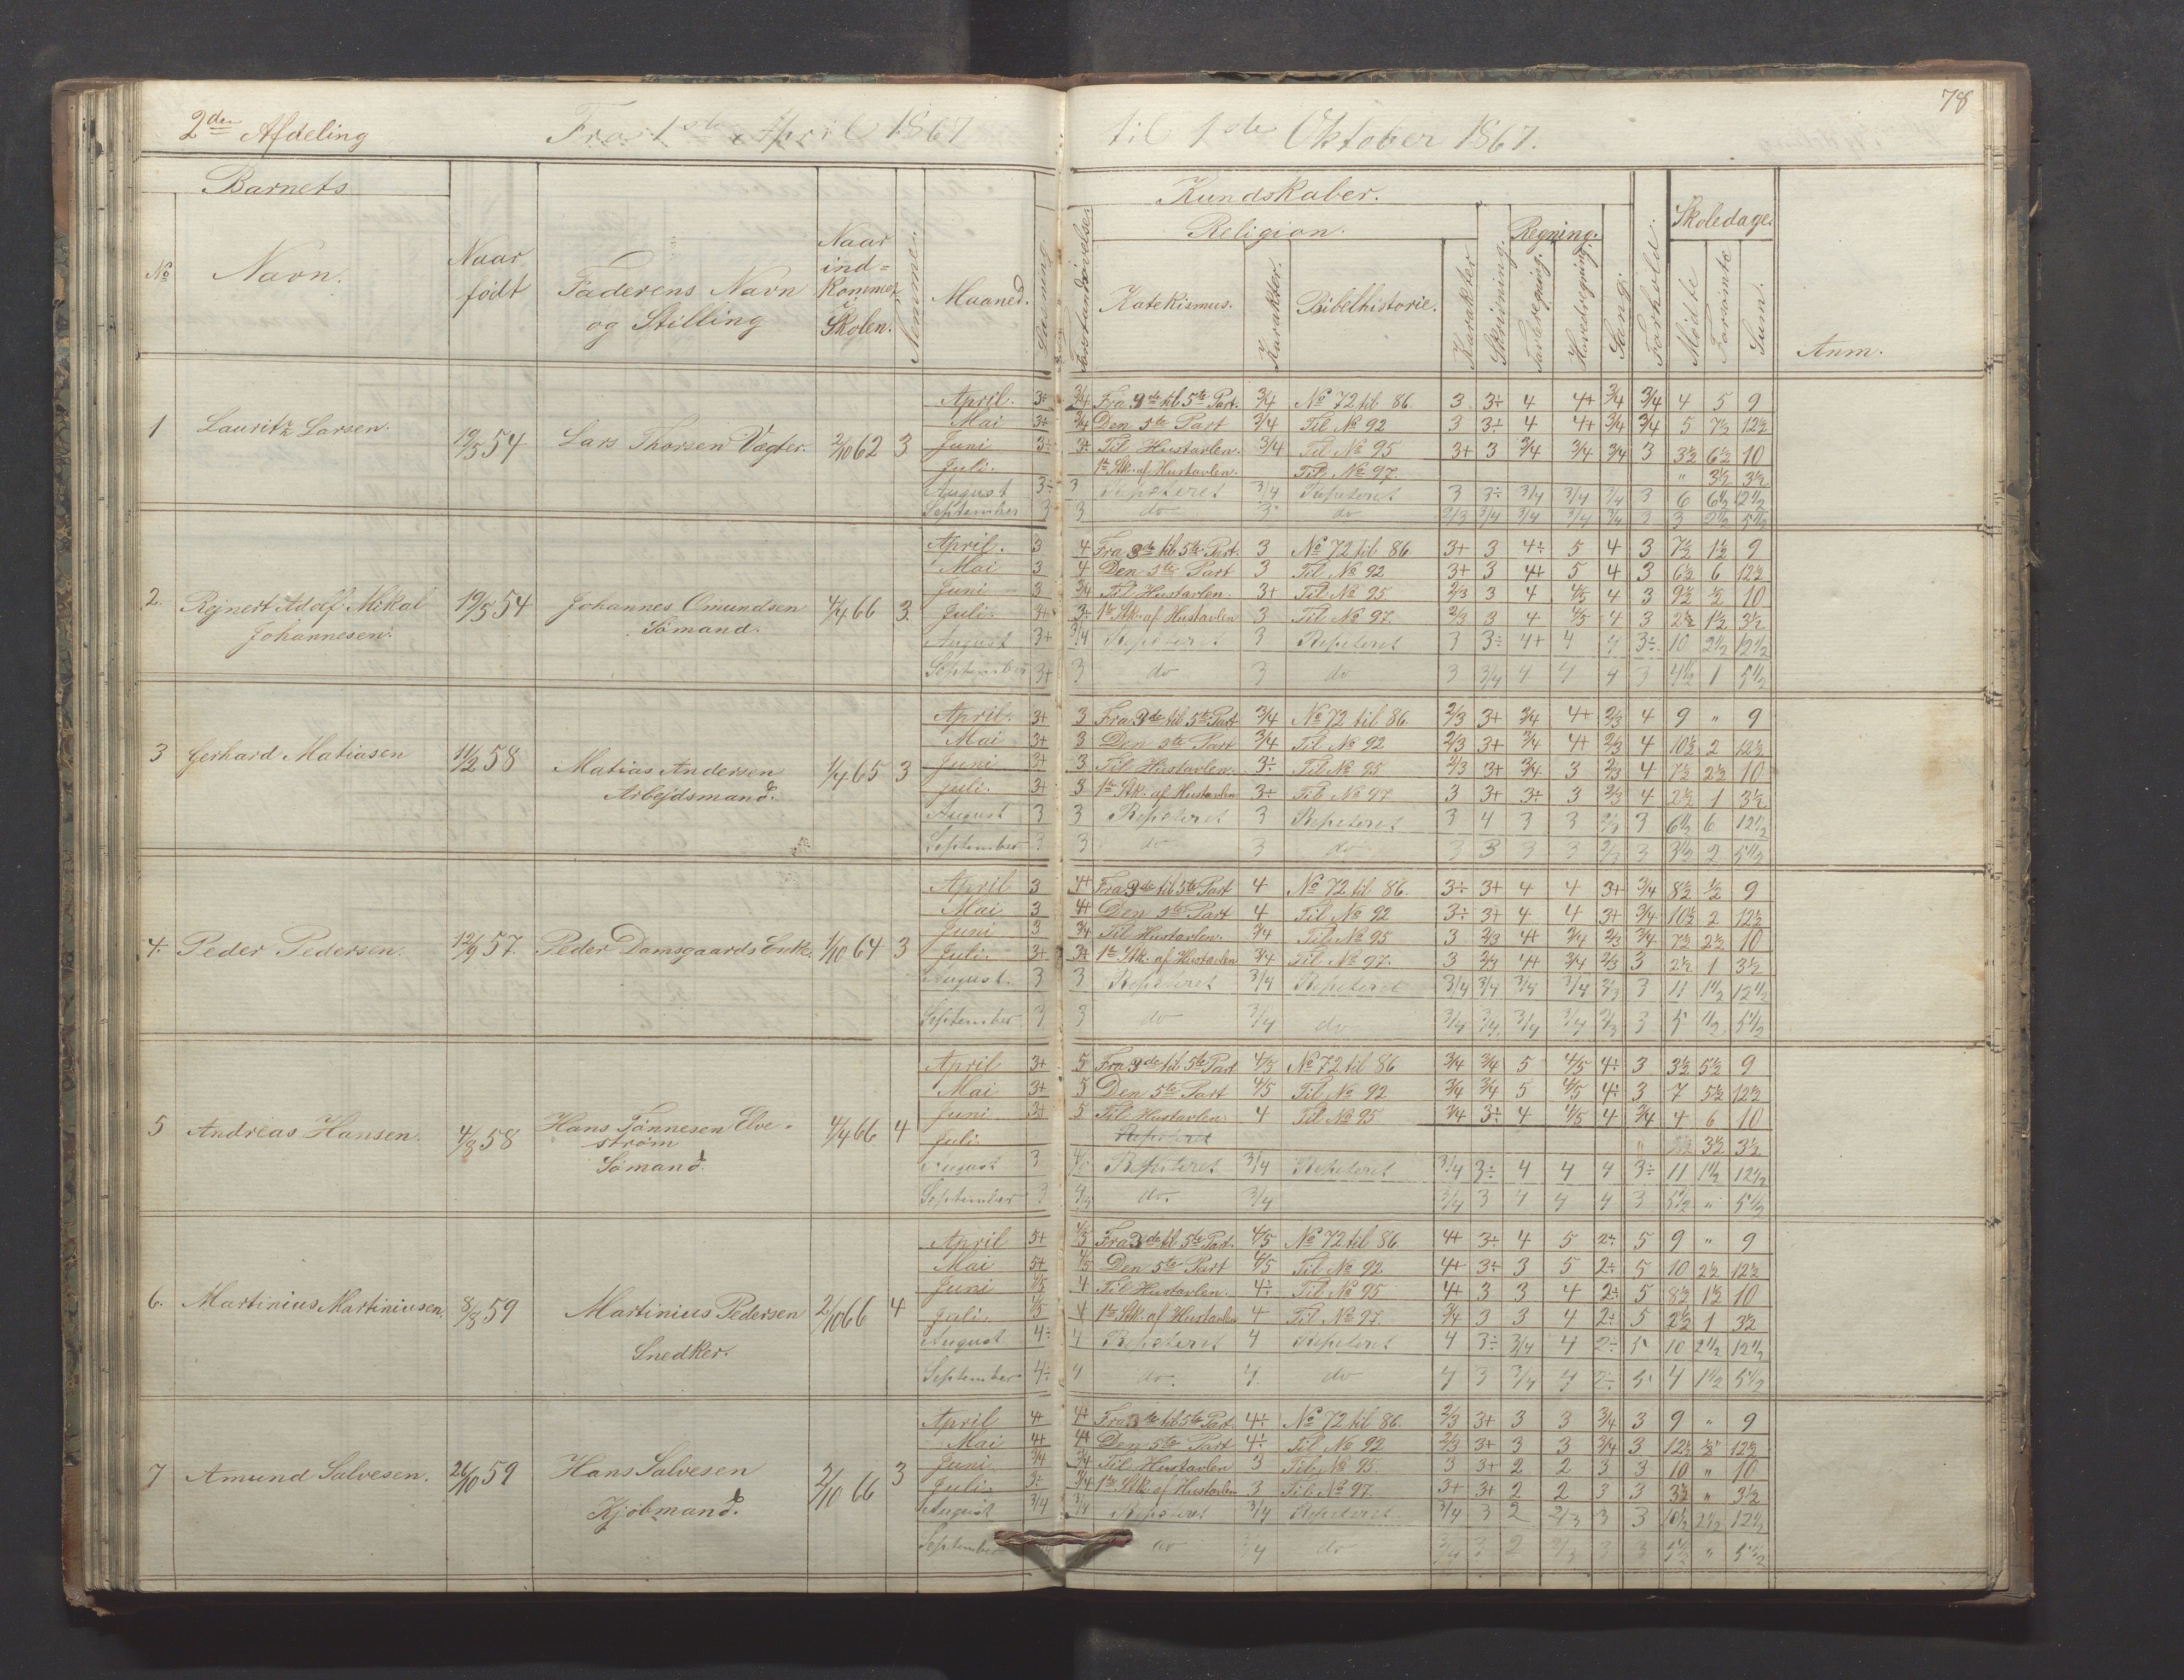 78
2den Afdeling Fra 1ste April 1867 til 1ste Oktober 1867.
Barnets Kundskaber. Skoledage.
Religion. Regning.
No Navn. Naar født Faderens Navn og Stilling Naar ind= kommen i Skolen. Nemme. Maaned. Læsning Forstandsøvelser Katekismus. Karakter. Bibelhistorie. Karakter Skrivning. Tavleregning. Hovedregning. Sang. Forhold. Mødte Forsømte Sum. Anm.
1 Lauritz Larsen. 19/5 54 Lars Thorsen Vægter. 2/10 62 3
April. 3÷ 3/4 Fra 3de til 5te Part. 3/4 No 72 til 86. 3 3÷ 4 4+ 3/4 3/4 4 5 9
Mai 3÷ 3/4 Den 5te Part 3/4 Til No 92 3 3÷ 4 4+ 3/4 3/4 5 7½ 12½
Juni 3÷ 3÷ Til Hustavlen. 3/4 Til No 95 3+ 3 3/4 3/4 3/4 3 3½ 6½ 10
Juli. 1te Stk. af Hustavlen. Til No 97. " 3½ 3½
August 3÷ 3 Repeteret 3/4 Repeteret 3 3÷ 3/4 3/4 3/4 3 6 6½ 12½
September 3 3 do 3 do 2/3 3/4 3/4 3/4 3/4 3 3 2½ 5½
2. Rejnert Adolf Mikal Johannesen. 19/5 54 Johannes Omundsen Sømand. 4/4 66 3.
April. 3 4 Fra 3de til 5te Part. 3 No 72 til 86 3+ 3 4÷ 5 4 3 7½ 1½ 9
Mai 3 4 Den 5te Part 3 Til No 92 3+ 3 4+ 5 4 3 6½ 6 12½
Juni 3 3/4 Til Hustavlen. 3+ Til No 95 2/3 3 4 4/5 4 3 9½ ½ 10
Juli. 3+ 3÷ 1te Stk. af Hustavlen 3 Til No 97. 2/3 3 4 4/5 4 3 2½ 1½ 3½
August 3+ 3/4 Repeteret 3 Repeteret 3 3÷ 4+ 4 4 3÷ 10 2½ 12½
September 3+ 3 do 3 do 3 3/4 4 4 4 3 4½ 1 5½
3 Gerhard Matiasen 11/2 58 Matias Andersen Arbejdsmand. 1/4 65 3
April. 3+ 3 Fra 3de til 5te Part 3/4 No 72 til 86. 2/3 3+ 3/4 4+ 2/3 4 9 " 9
Mai 3+ 3 Den 5te Part 3/4 Til No 92 2/3 3+ 3/4 4+ 2/3 4 10½ 2 12½
Juni 3+ 3 Til Hustavlen. 3÷ Til No 95 2/3 3+ 3/4 3 2/3 4 7½ 2½ 10
Juli. 3+ 3 1te Stk. af Hustavlen 3÷ Til No 97 3 3+ 3÷ 3 2/3 4 2½ 1 3½
August 3 3 Repeteret 3 Repeteret 3 4 3 3 2/3 3 6½ 6 12½
September 3 3 do 3 do 3 3 3 3 2/3 3 3½ 2 5½
4. Peder Pedersen. 12/9 57. Peder Damsgaards Enke. 1/10 64 3
April 3 4+ Fra 3de til 5te Part 4 No 72 til 86. 3÷ 3+ 4 4 3+ 3/4 8½ ½ 9
Mai 3 4+ Den 5te Part 4 Til No 92 3÷ 3+ 4 4 3+ 3/4 10½ 2 12½
Juni 3 3/4 Til Hustavlen. 3/4 Til No 95 3 2/3 4+ 3/4 2/3 3/4 7½ 2½ 10
Juli. 3+ 3+ 1te Stk. af Hustavlen 3/4 Til No 97. 3 2/3 4+ 3/4 2/3 3 2½ 1 3½
August. 3 3 Repeteret 3/4 Repeteret 3/4 3/4 3/4 3/4 2/3 3 11 1½ 12½
September 3 3 do 3/4 do 3/4 3/4 3/4 3/4 2/3 3 5 ½ 5½
5 Andreas Hansen. 4/3 58 Hans Tønnesen Elve- strøm Sømand. 4/4 66 4
April 3+ 5 Fra 3de til 5te Part 4/5 No 72 til 86 3/4 3/4 5 4/5 4÷ 3 3½ 5½ 9
Mai 3+ 5 Den 5te Part 4/5 Til No 92 3/4 3/4 5 4/5 4÷ 3 7 5½ 12½
Juni 3+ 5 Til Hustavlen 4 Til No 95 3/4 3÷ 4 4/5 4 3/4 4 6 10
Juli. Repeteret " 3½ 3½
August 3 Repeteret 3/4 Repeteret 3/4 3÷ 4 4 4 3÷ 11 1½ 12½
September 3 4/5 do. 3/4 3/4 3 4 4 4 3 5½ " 5½
6. Martinius Martiniusen. 8/8 59 Martinius Pedersen Snedker. 2/10 66 4
April 5+ 4/5 Fra 3de til 5te Part. 4/5 No 72 til 86 4+ 3÷ 4 5 2÷ 5 9 " 9
Mai 5+ 4/5 Den 5te Part 4/5 Til No 92 4+ 3÷ 3 5 2÷ 5 10 2½ 12½
Juni 4/5 4 Til Hustavlen. 4÷ Til No 95 4+ 3 3 4 2÷ 5 8½ 1½ 10
Juli. 4/5 4 1te Stk. af Hustavlen 4 Til No 97. 3/4 3 3 4 2÷ 5 2½ 1 3½
August 4÷ 4 Repeteret 4 Repeteret 4 3÷ 3/4 4 2÷ 5 10 2½ 12½
September 4÷ 4 do. 4. do 4 3 3/4 4 2÷ 5 4 1½ 5½
7 Amund Salvesen. 26/10 59 Hans Salvesen Kjøbmand. 2/10 66 3
April 4+ 4+ Fra 3de til 5te Part. 4÷ No 72 til 86. 2/3 3+ 3 3 3/4 3 9 " 9
Mai 4+ 4+ Den 5te Part 4÷ Til No 92 2/3 3+ 3 3 3/4 3 12½ 12½
Juni 3/4 3/4 Til Hustavlen 3 Til No 95. 3 3+ 2 2 3 3 10 " 10
Juli. 3÷ 3/4 1te Stk. af Hustavlen 3 Til No 97. 3+ 3+ 2 2 3 3 3½ " 3½
August 3/4 3/4 Repeteret 3/4 Repeteret 3/4 3 2 2/3 3 3 10½ 2½ 12½
September do 3/4 do 3/4 3 2 2/3 3 3 5½ " 5½